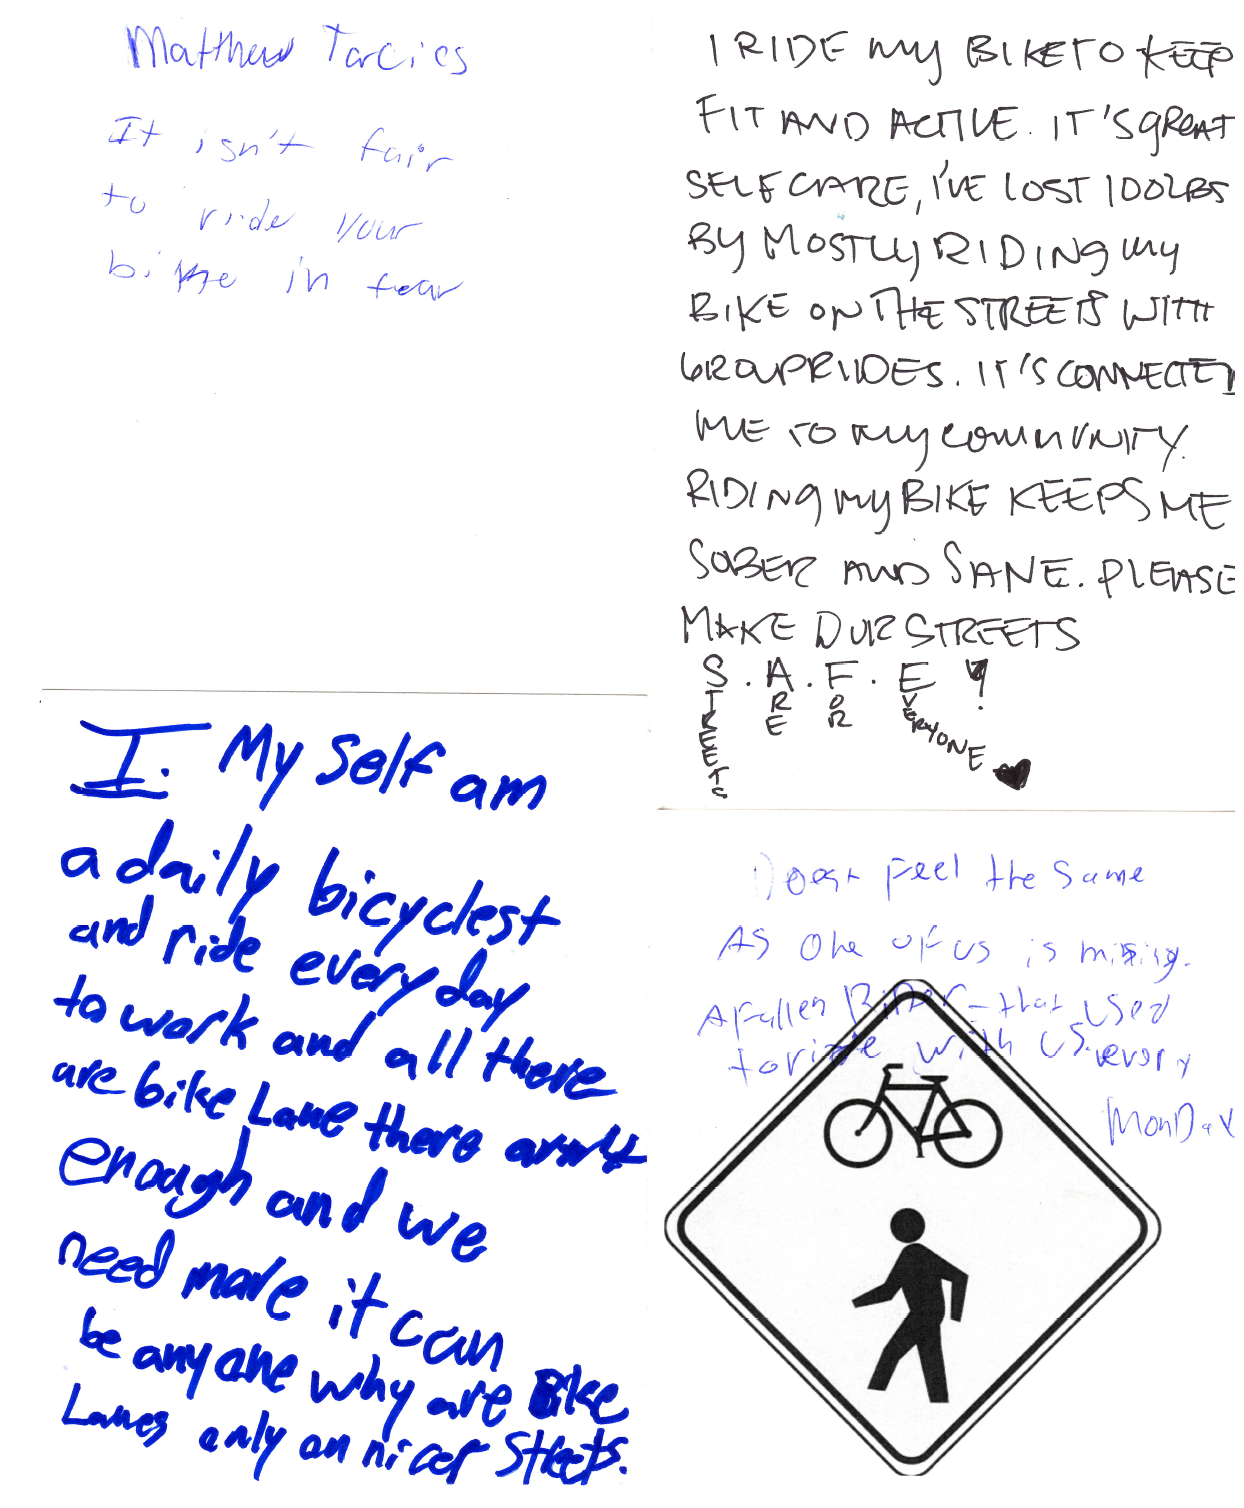 Matthew Tarcies
It isn't fair
to ride your
bike in fear
I RIDE my BIKE TO KEEP
FIT AND ACTIVE. IT'S gREAT
SELF CARE, I'VE LOST 100LBS
BY MOSTLY RIDING my
BIKE ON THE STREETS WITH
GROUP RIDES. IT'S CONNECTED
ME TO my COMMUNITY.
RIDING my BIKE KEEPS ME
SOBER AND SANE. PLEASE
MAKE OUR STREETS
S.A.F.E!
STREETS ARE FOR EVERYONE
I. My Self am
a daily bicyclest
and ride every day
to work and all there
are bike Lane there arn't
enough and we
need more it can
be anyone why are Bike
Lanes only on nicer Streets.
Doesn't Feel the Same
AS One OF US is missing.
A Fallen Rider - that used
to ride with US. every
MonDay